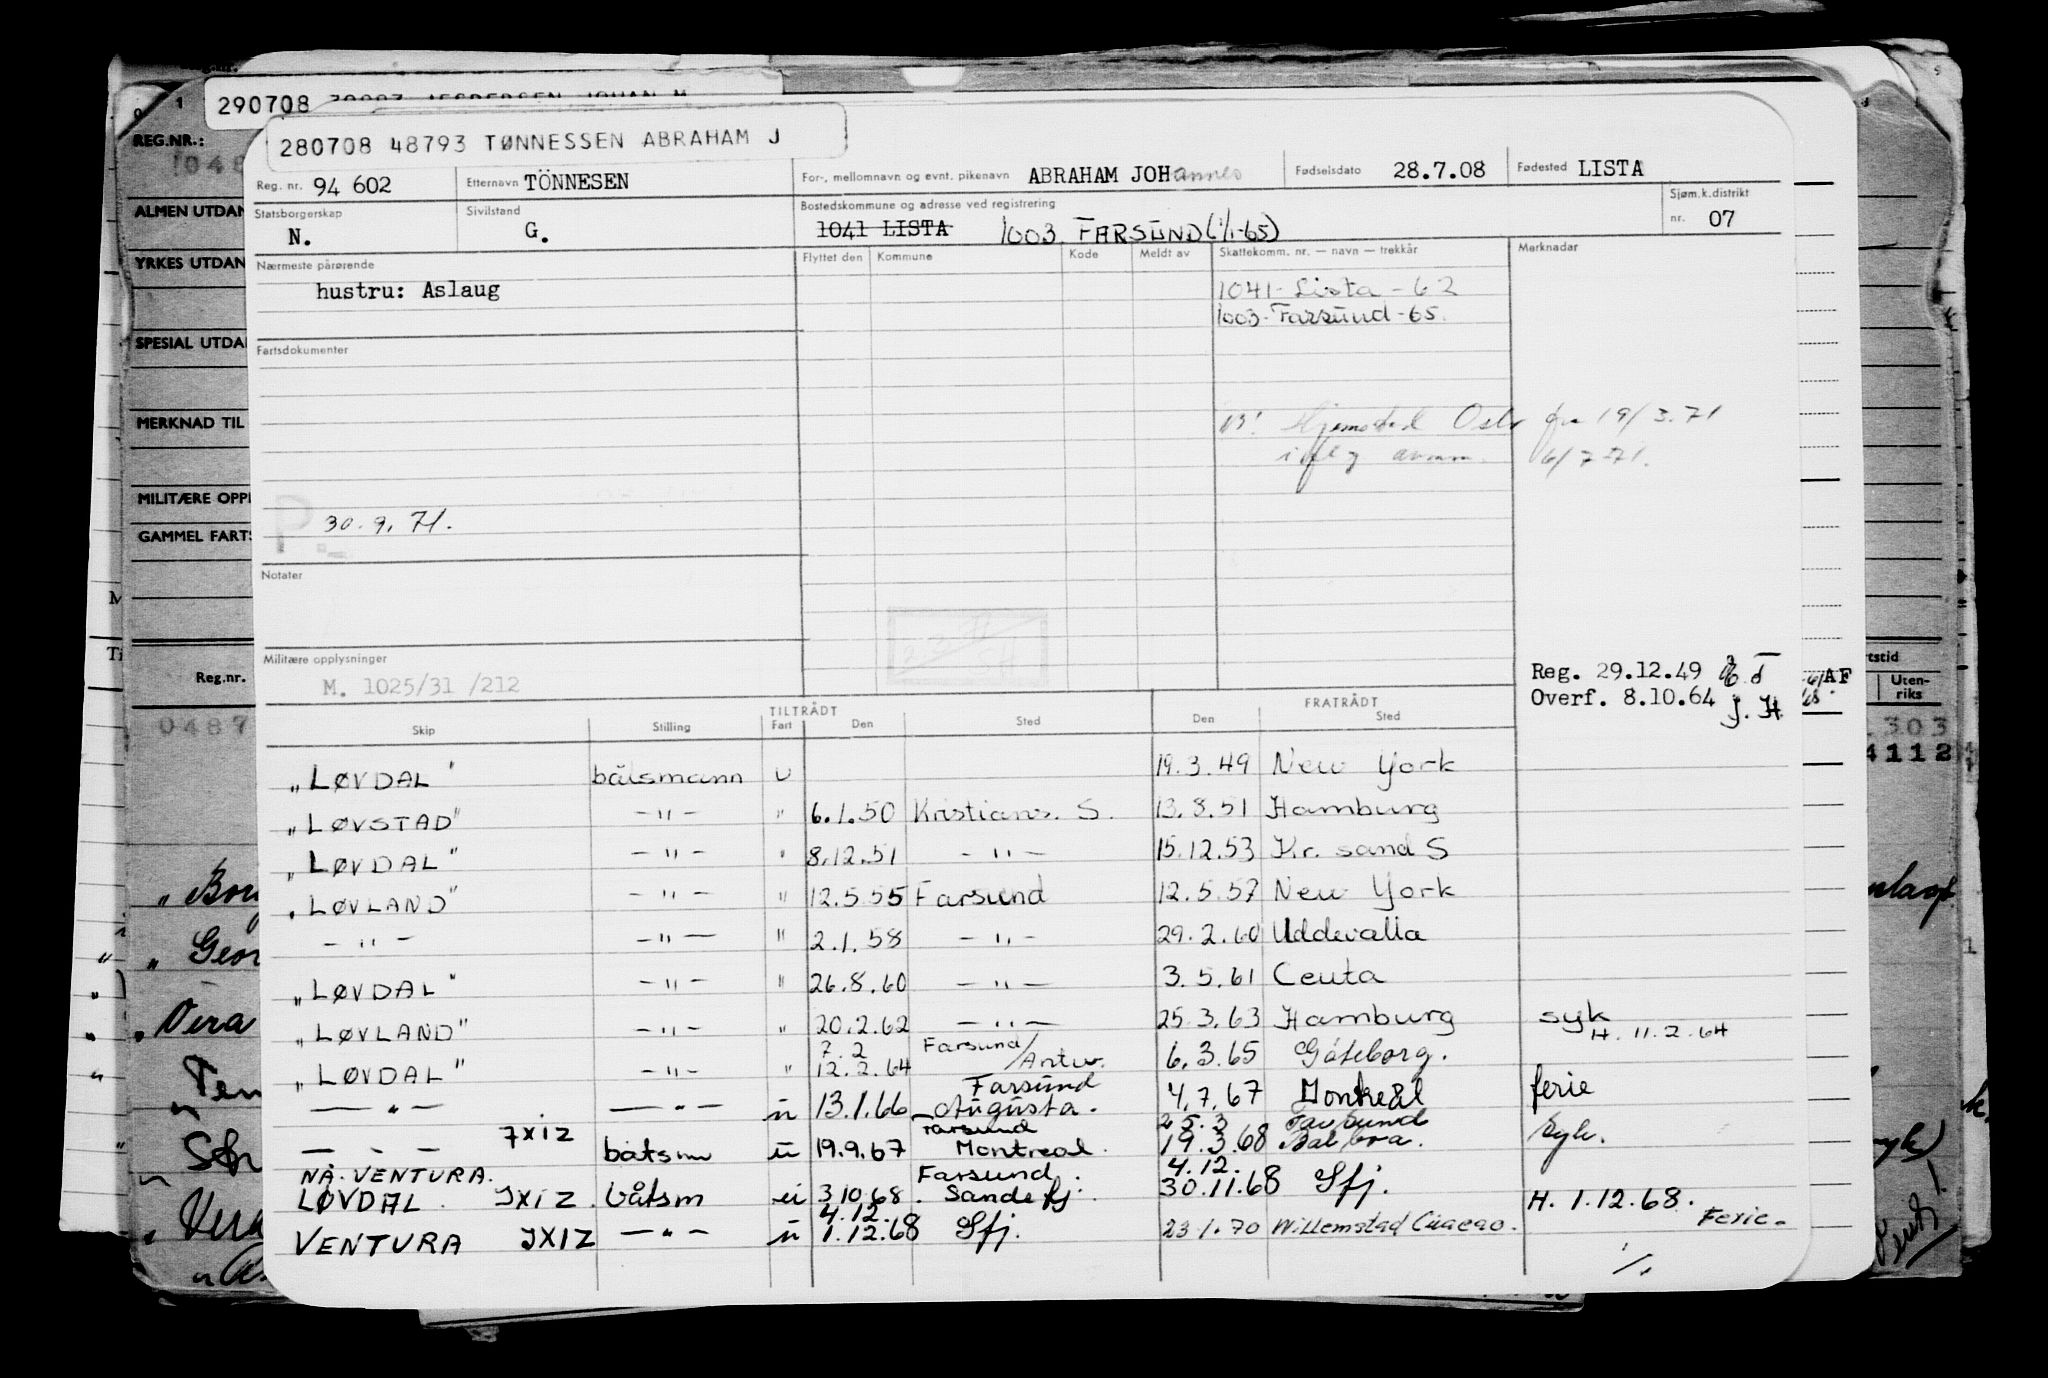 290708
280708 48793 TØNNESSEN ABRAHAM J
REG.NR.:
Reg. nr. 94 602 Etternavn TÖNNESEN For-, mellomnavn og evnt. pikenavn ABRAHAM JOHannes Fødselsdato 28.7.08 Fødested LISTA
ALMEN UTDAN
Statsborgerskap N. Sivilstand G. Bostedskommune og adresse ved registrering 1041 LISTA 1003 FARSUND (1/1-65) Sjøm.k.distrikt nr. 07
YRKES UTDAN
Nærmeste pårørende Flyttet den Kommune Kode Meldt av Skattekomm. nr. — navn — trekkår Merknadar
hustru: Aslaug 1041- Lista - 62
1003- Farsund - 65.
SPESIAL UTDA
Fartsdokumenter
MERKNAD TIL
Hjemsted Oslo fra 19/3.71
iflg 6/7 71.
MILITÆRE OPPL
30.9.71.
GAMMEL FARTS
Notater
Militære opplysninger
M. 1025/31 /212
Reg. 29.12.49
Overf. 8.10.64 J. H.
AF
Reg.nr.
Uten-
riks
0487
303
4112
TILTRÅDT FRATRÅDT
Skip Stilling Fart Den Sted Den Sted
"LØVDAL" båtsmann u 19.3.49 New York
"LØVSTAD" -"- " 6.1.50 Kristians. S. 13.8.51 Hamburg
"LØVDAL" -"- " 8.12.51 -"- 15.12.53 Kr. sand S
"LØVLAND" -"- " 12.5.55 Farsund 12.5.57 New York
-"- -"- " 2.1.58 -"- 29.2.60 Uddevalla
"LØVDAL" -"- " 26.8.60 -"- 3.5.61 Ceuta
"LØVLAND" -"- " 20.2.62 -"- 25.3.63 Hamburg syk H. 11.2.64
7.2 Farsund/
"LØVDAL" -"- " 12.2.64 Antw. 6.3.65 Göteborg.
Farsund
-"- -"- u 13.1.66 Augusta. 4.7.67 Montreal ferie
Farsund 25.3 Farsund
- - - JXIZ båtsm u 19.9.67 Montreal. 19.3.68 Balboa. syk.
NÅ. VENTURA. Farsund. 4.12.
LØVDAL. JXIZ. båtsm u 3.10.68. Sandefj. 30.11.68 Sfj. H. 1.12.68.
4.12.
VENTURA JXIZ -"- u 1.12.68 Sfj. 23.1.70 Willemstad Curacao. Ferie.